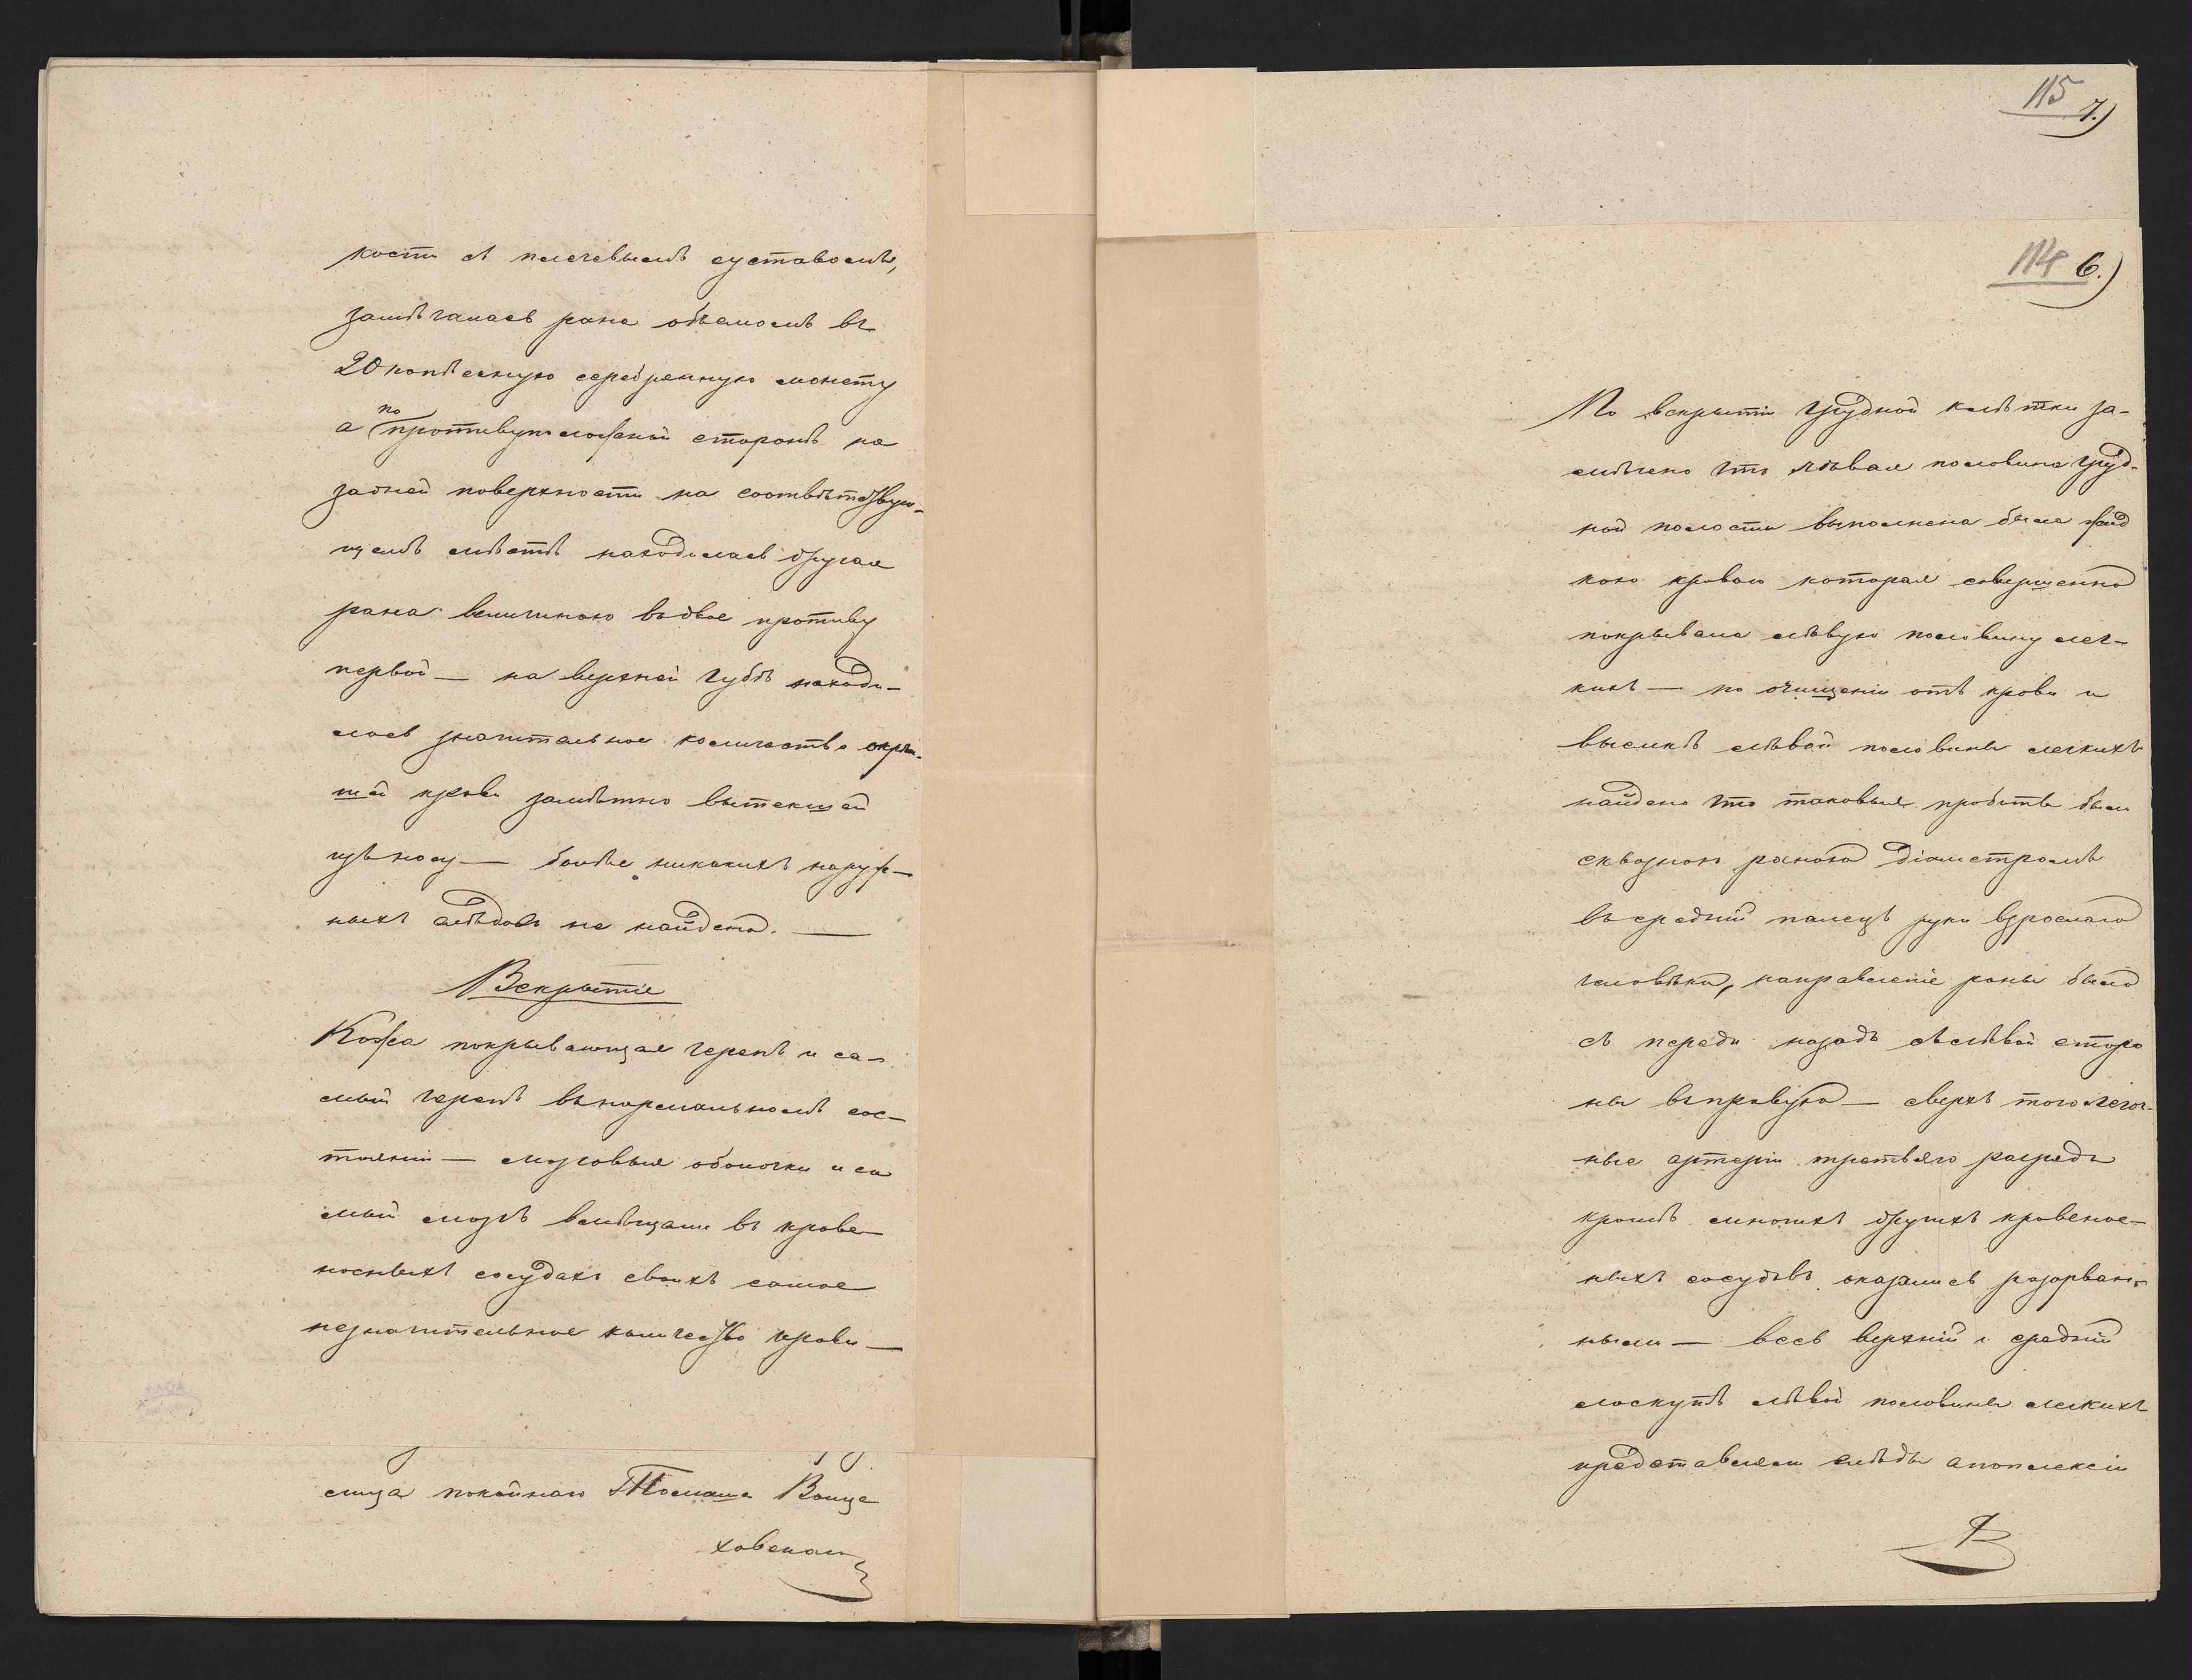 кости съ плечевымъ суставомъ,
замѣчалась рана объемомъ въ
20 копѣечную серебренную монету
а по противуположной сторонѣ на
задней поверхности на соотвѣтствую-
щемъ мѣстѣ находилась другая
рана величиною вдвое противу
первой — на верхней губѣ находи-
лось значительное количество
шей крови замѣтно вытекшей
изъ носу — болѣе никакихъ наруж-
ныхъ слѣдовъ не найдено. —
Вскрытіе
Кожа покрывающая черепъ и са-
мый черепъ въ нормальномъ сос-
тояніи — мозговыя оболочки и са
мый мозгъ вмѣщали въ крове
носныхъ сосудахъ своихъ самое
незначительное количество крови —
лица покойнаго Томаша Войце
ховскаго
115 7.)
114 6.)
По вскрытіи грудной клѣтки за-
мѣчено что лѣвая половина груд-
ной полости выполнена была жид
кою кровью которая совершенно
покрывала лѣвую половину лег-
кихъ — по очищеніи отъ крови и
лѣвой половины легкихъ
найдено что таковыя пробиты были
сквозною раною діаметромъ
въ средній палецъ руки взрослаго
человѣка, направленіе раны было
съ переди назадъ съ лѣвой сторо
ны въ правую — сверхъ того легоч-
ные артеріи третьяго разряда
кромѣ многихъ другихъ кровенос-
ныхъ сосудовъ оказались разорван-
ными — весь верхній и средній
лоскутъ лѣвой половины легкихъ
представляли слѣды апоплексіи